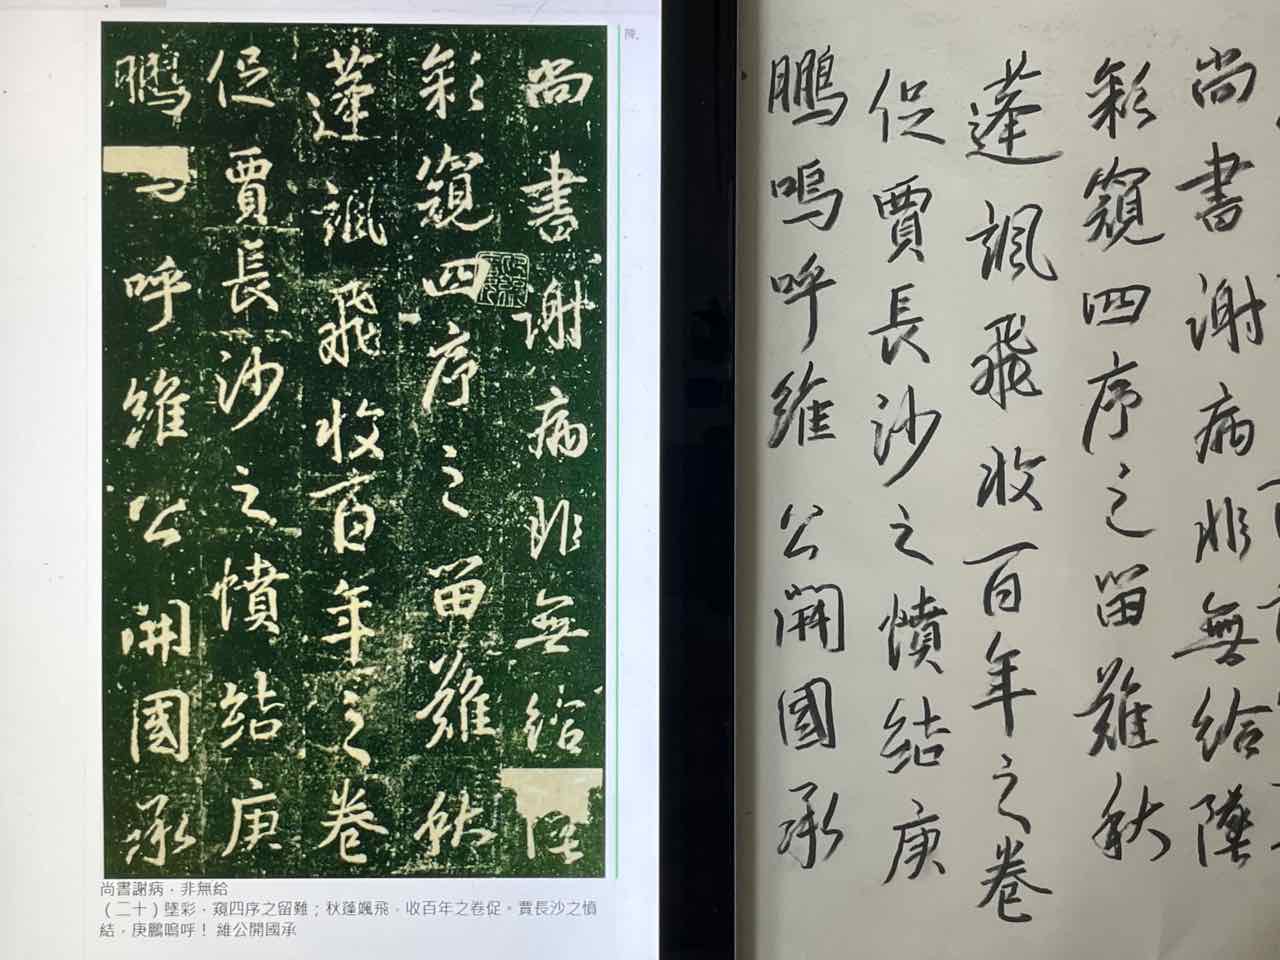 陳.
尚書謝病非無給
彩窺四序之留難秋
蓬颯飛收百年之卷
促賈長沙之憤結庚
鵬呼維公開國承
尚書謝病，非無給
（二十）墜彩，窺四序之留難；秋蓬颯飛，收百年之卷促。賈長沙之憤
結，庚鵬嗚呼！維公開國承
尚書謝病非無給
彩窺四序之留難秋
蓬颯飛收百年之卷
促賈長沙之憤結庚
鵬嗚呼維公開國承